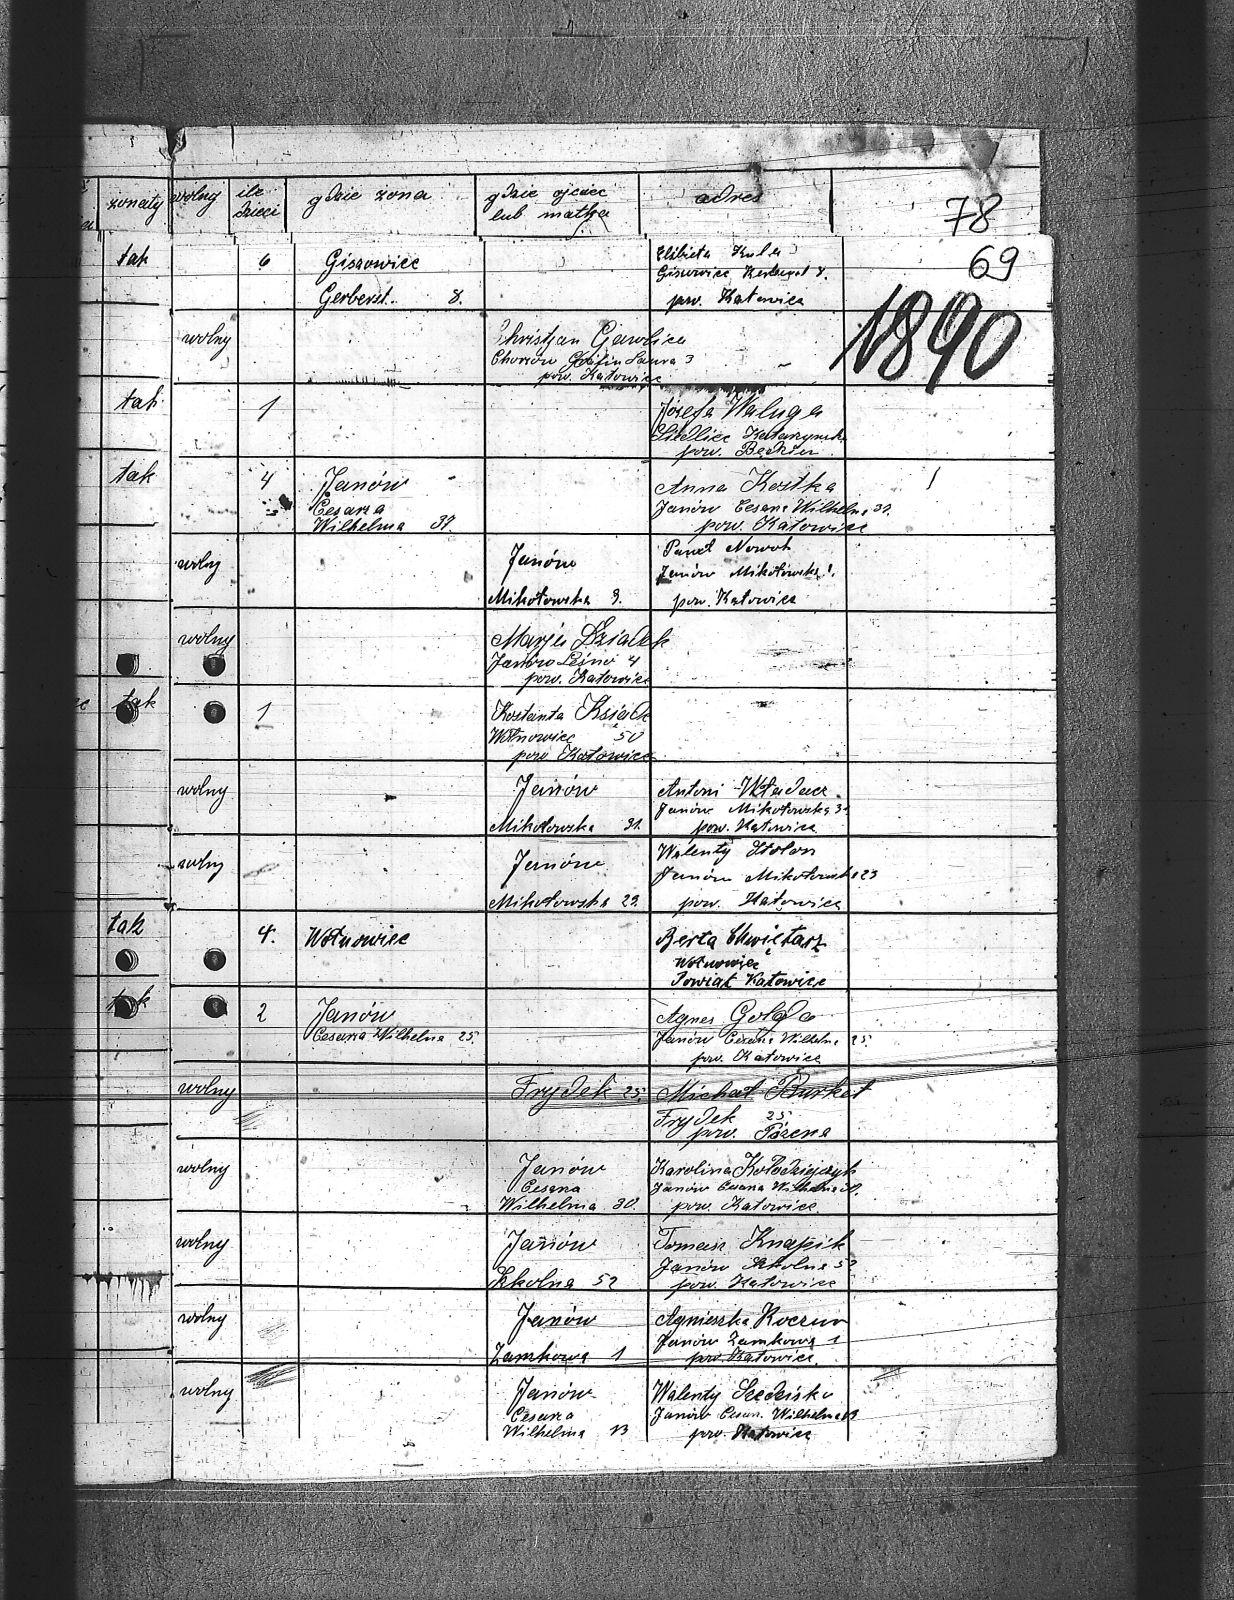 żonaty wolny ile dzieci gdzie żona gdzie ojciec lub matka adres 78
69
1890
tak 6 Giszowiec Elżbieta Kula
Giszowiec 8.
8. pow. Katowice
wolny Christjan Gawlica
Chorzów Gräfin Laura 3
pow. Katowice
tak 1 Józefa Waluga
pow. Będzin
tak 4 Janów Anna Kostka
Cesarza Janów Cesarza Wilhelma 39.
Wilhelma 39. pow. Katowice
wolny Janów Paweł Nowok
Janów Mikołowska
Mikołowska 9. pow. Katowice
wolny Marja Dziadek
Janów Leśna 4
pow. Katowice
tak 1 Konstanta Ksiądz
Wełnowiec 50
pow. Katowice
wolny Janów Antoni
Janów Mikołowska 31
Mikołowska 31. pow. Katowice
wolny Janów Walenty Stolon
Janów Mikołowska 23
Mikołowska 23. pow. Katowice
tak 4. Wełnowiec Berta Chwiętarz
Wełnowiec
Powiat Katowice
tak 2 Janów Agnes
Cesarza Wilhelma 25. Janów Cesarza Wilhelma 25.
pow. Katowice
wolny Frydek 25. Michał Burket
Frydek 25.
pow. Pszczyna
wolny Janów Karolina Kołodziejczyk
Cesarza Janów Cesarza Wilhelma 30.
Wilhelma 30. pow. Katowice
wolny Janów Tomasz Knapik
Janów Szkolna 52
Szkolna 52 pow. Katowice
wolny Janów Agnieszka
Janów Zamkowa 1
Zamkowa 1 pow. Katowice
wolny Janów Walenty
Cesarza Janów Cesarza Wilhelma 13
Wilhelma 13 pow. Katowice